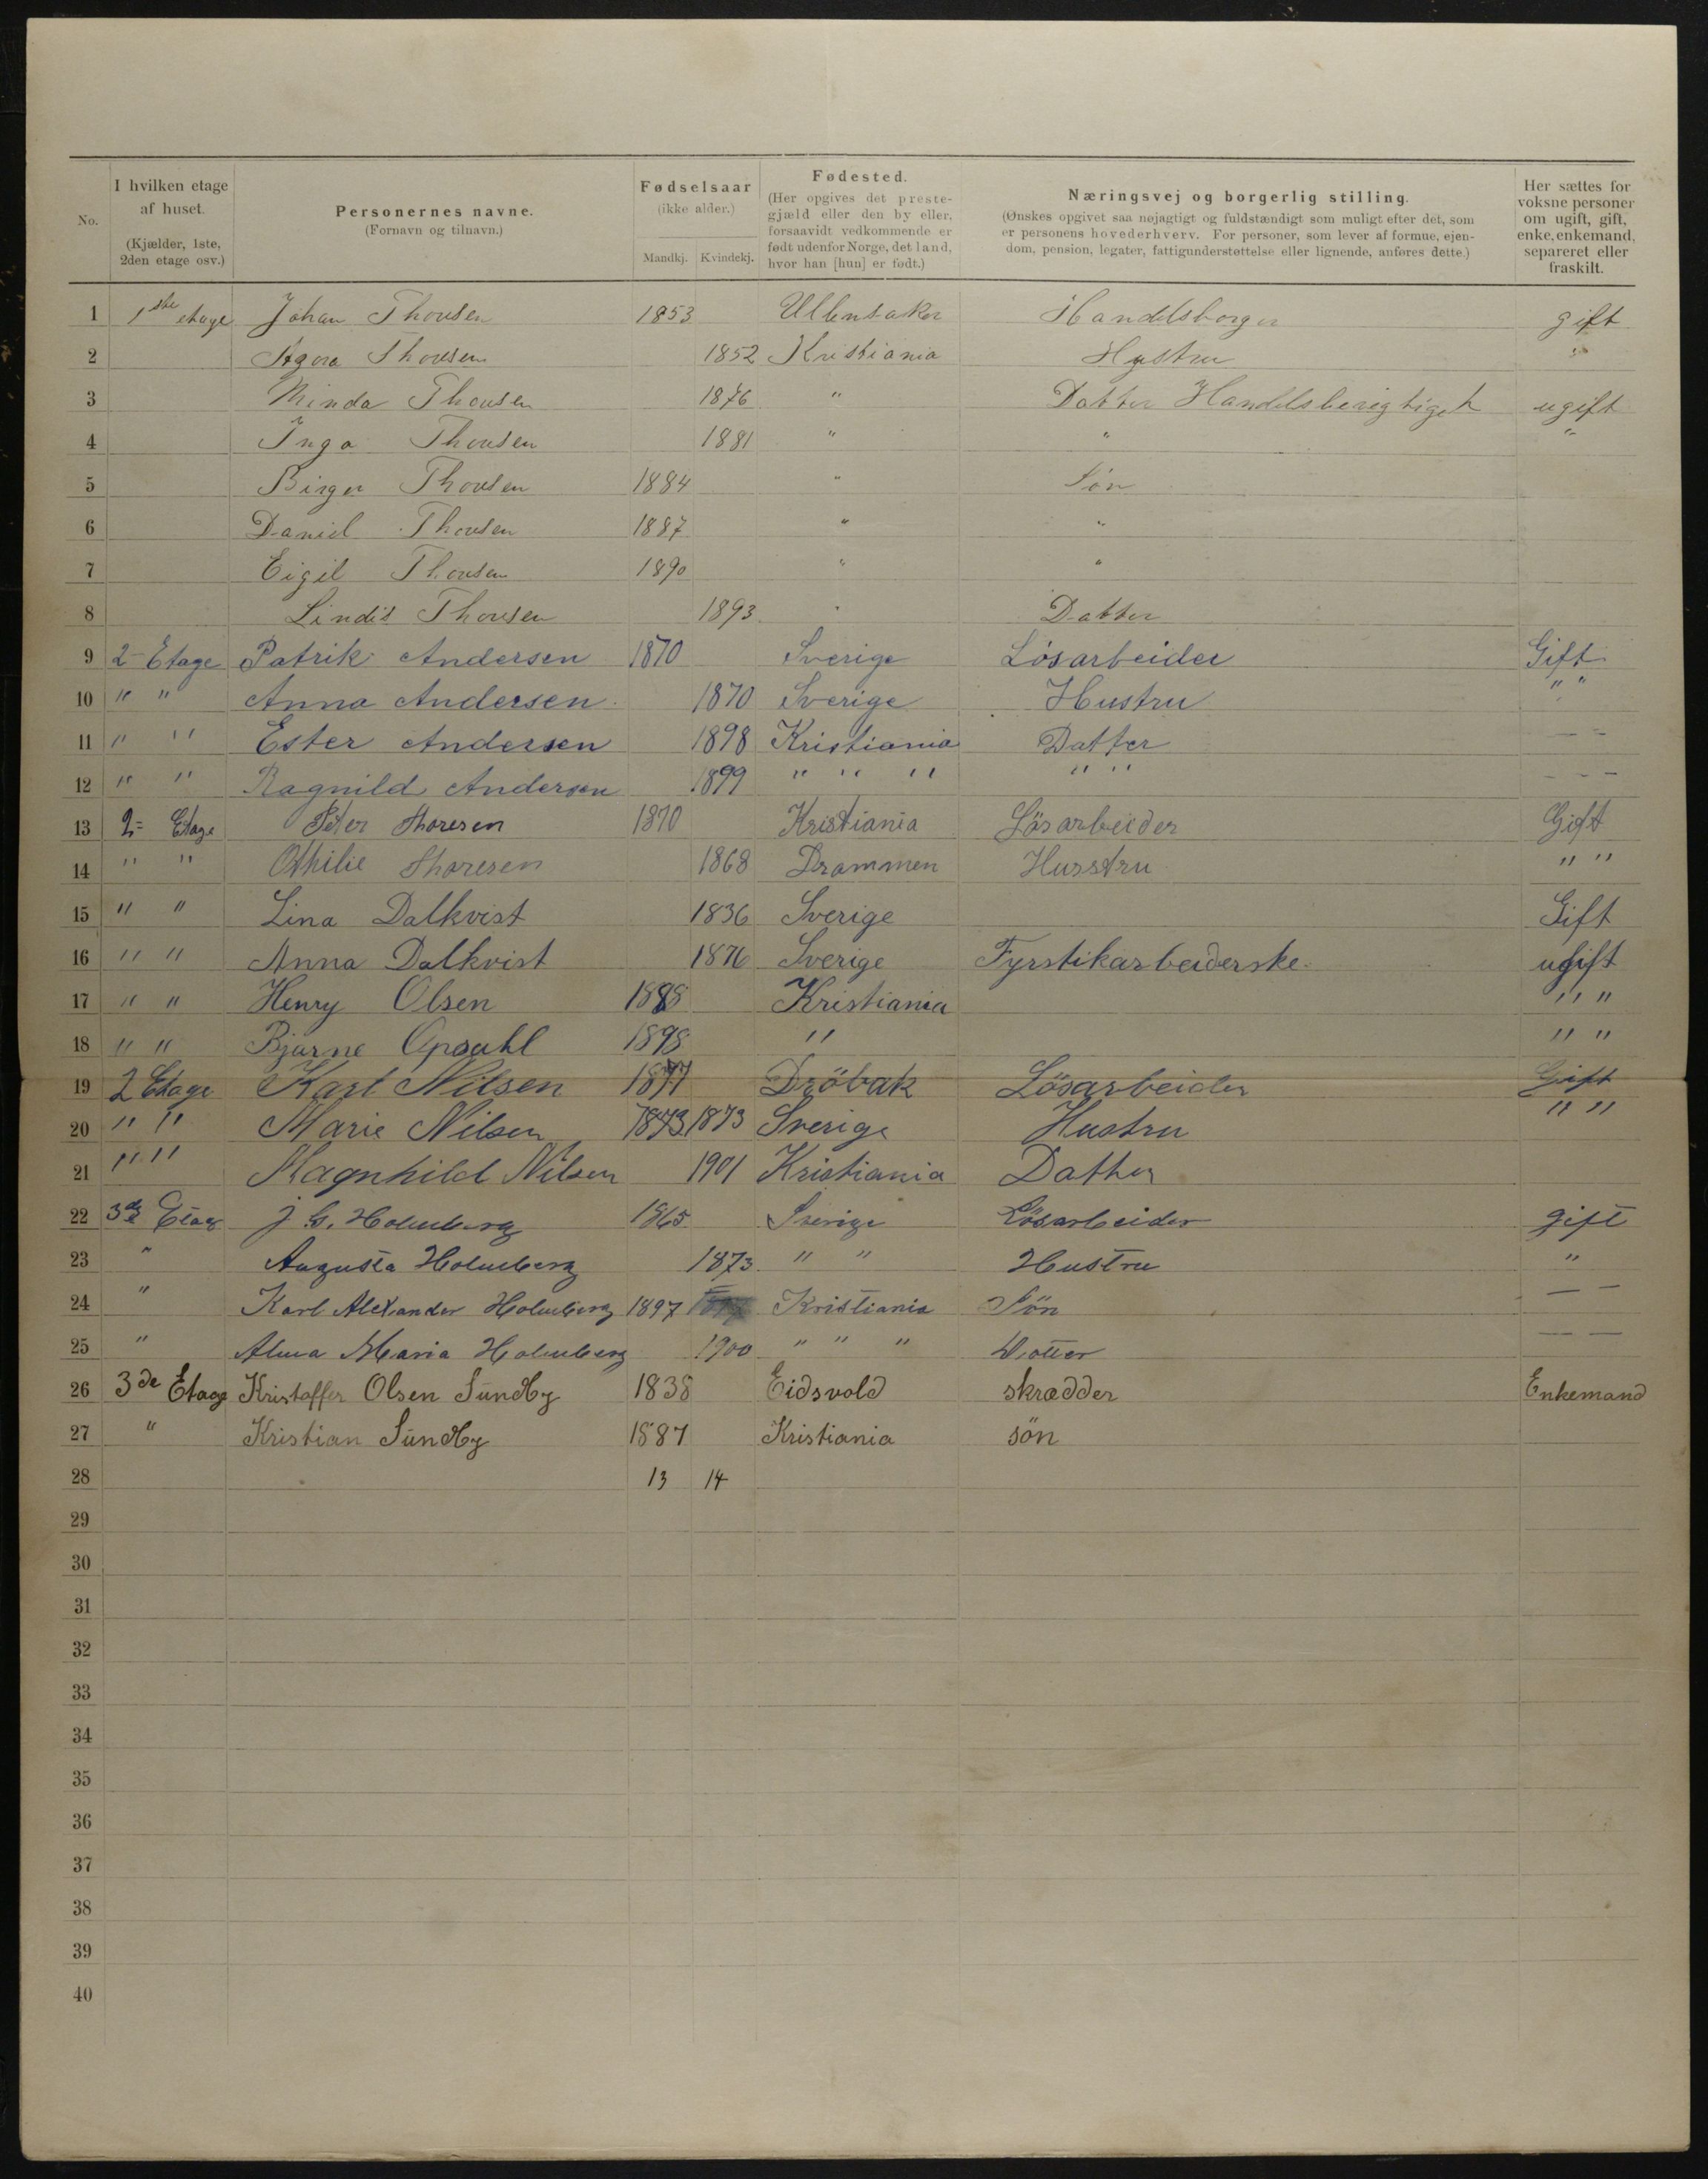 No. | I hvilken etage af huset. (Kjælder, 1ste, 2den etage osv.) | Personernes navne. (Fornavn og tilnavn.) | Fødselsaar (ikke alder.) Mandkj. Kvindekj. | Fødested. (Her opgives det prestegjæld eller den by eller, forsaavidt vedkommende er født udenfor Norge, det land, hvor han [hun] er født.) | Næringsvej og borgerlig stilling. (Ønskes opgivet saa nøjagtigt og fuldstændigt som muligt efter det, som er personens hovederhverv. For personer, som lever af formue, ejendom, pension, legater, fattigunderstøttelse eller lignende, anføres dette.) | Her sættes for voksne personer om ugift, gift, enke, enkemand, separeret eller fraskilt.
1 1ste etage Johan Thoresen 1853 Ullensaker Handelsborger gift
2 Thoresen 1852 Kristiania Hustru "
3 Minda Thoresen 1876 " Datter Handelsberigtiget ugift
4 Inga Thoresen 1881 " " "
5 Birger Thoresen 1884 " Søn
6 Daniel Thoresen 1887 " "
7 Eigil Thoresen 1890 " "
8 Lindis Thoresen 1893 " Datter
9 2- Etage Patrik Andersen 1870 Sverige Lösarbeider Gift
10 " " Anna Andersen 1870 Sverige Hustru " "
11 " " Ester Andersen 1898 Kristiania Datter — —
12 " " Ragnild Andersen 1899 " " " " " — — —
13 2= Etage Peter Thoresen 1870 Kristiania Lösarbeider Gift
14 " " Othilie Thoresen 1868 Drammen Husstru " "
15 " " Lina Dalkvist 1836 Sverige Gift
16 " " Anna Dalkvist 1876 Sverige Fyrstikarbeiderske ugift
17 " " Henry Olsen 1888 Kristiania " "
18 " " Bjarne Opsahl 1898 " " "
19 2 Etage Karl Nilsen 1877 Dröbak Lösarbeider Gift
20 " " Marie Nilsen 1873 1873 Sverige Hustru " "
21 " " Magnhild Nilsen 1901 Kristiania Datter
22 3de Etage J. G. Holmberg 1865 Sverige Lösarbeider gift
23 " Augusta Holmberg 1873 " " Hustru "
24 " Karl Alexander Holmberg 1897 Kristiania Sön — —
25 " Alma Maria Holmberg 1900 " " " Dotter — —
26 3de Etage Kristoffer Olsen Sundby 1838 Eidsvold skrædder Enkemand
27 " Kristian Sundby 1887 Kristiania sön
28 13 14
29
30
31
32
33
34
35
36
37
38
39
40